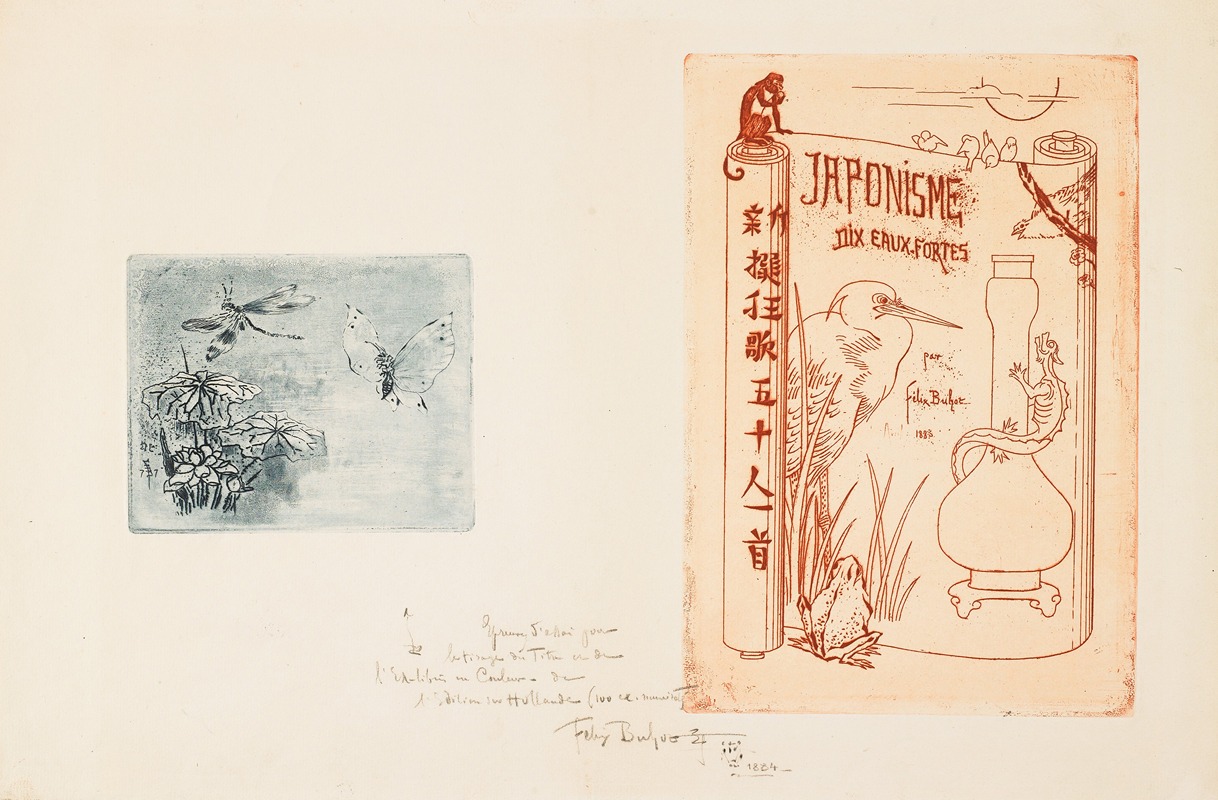 JAPONISME
DIX EAUX-FORTES
par
Félix Buhot
1883
新撰狂歌五十人一首
Epreuve d'essai pour
le tirage du Titre et de
l'Ex-libris en Couleur de
l'Edition sur Hollande (100 ex. numérotés
Félix Buhot
1884